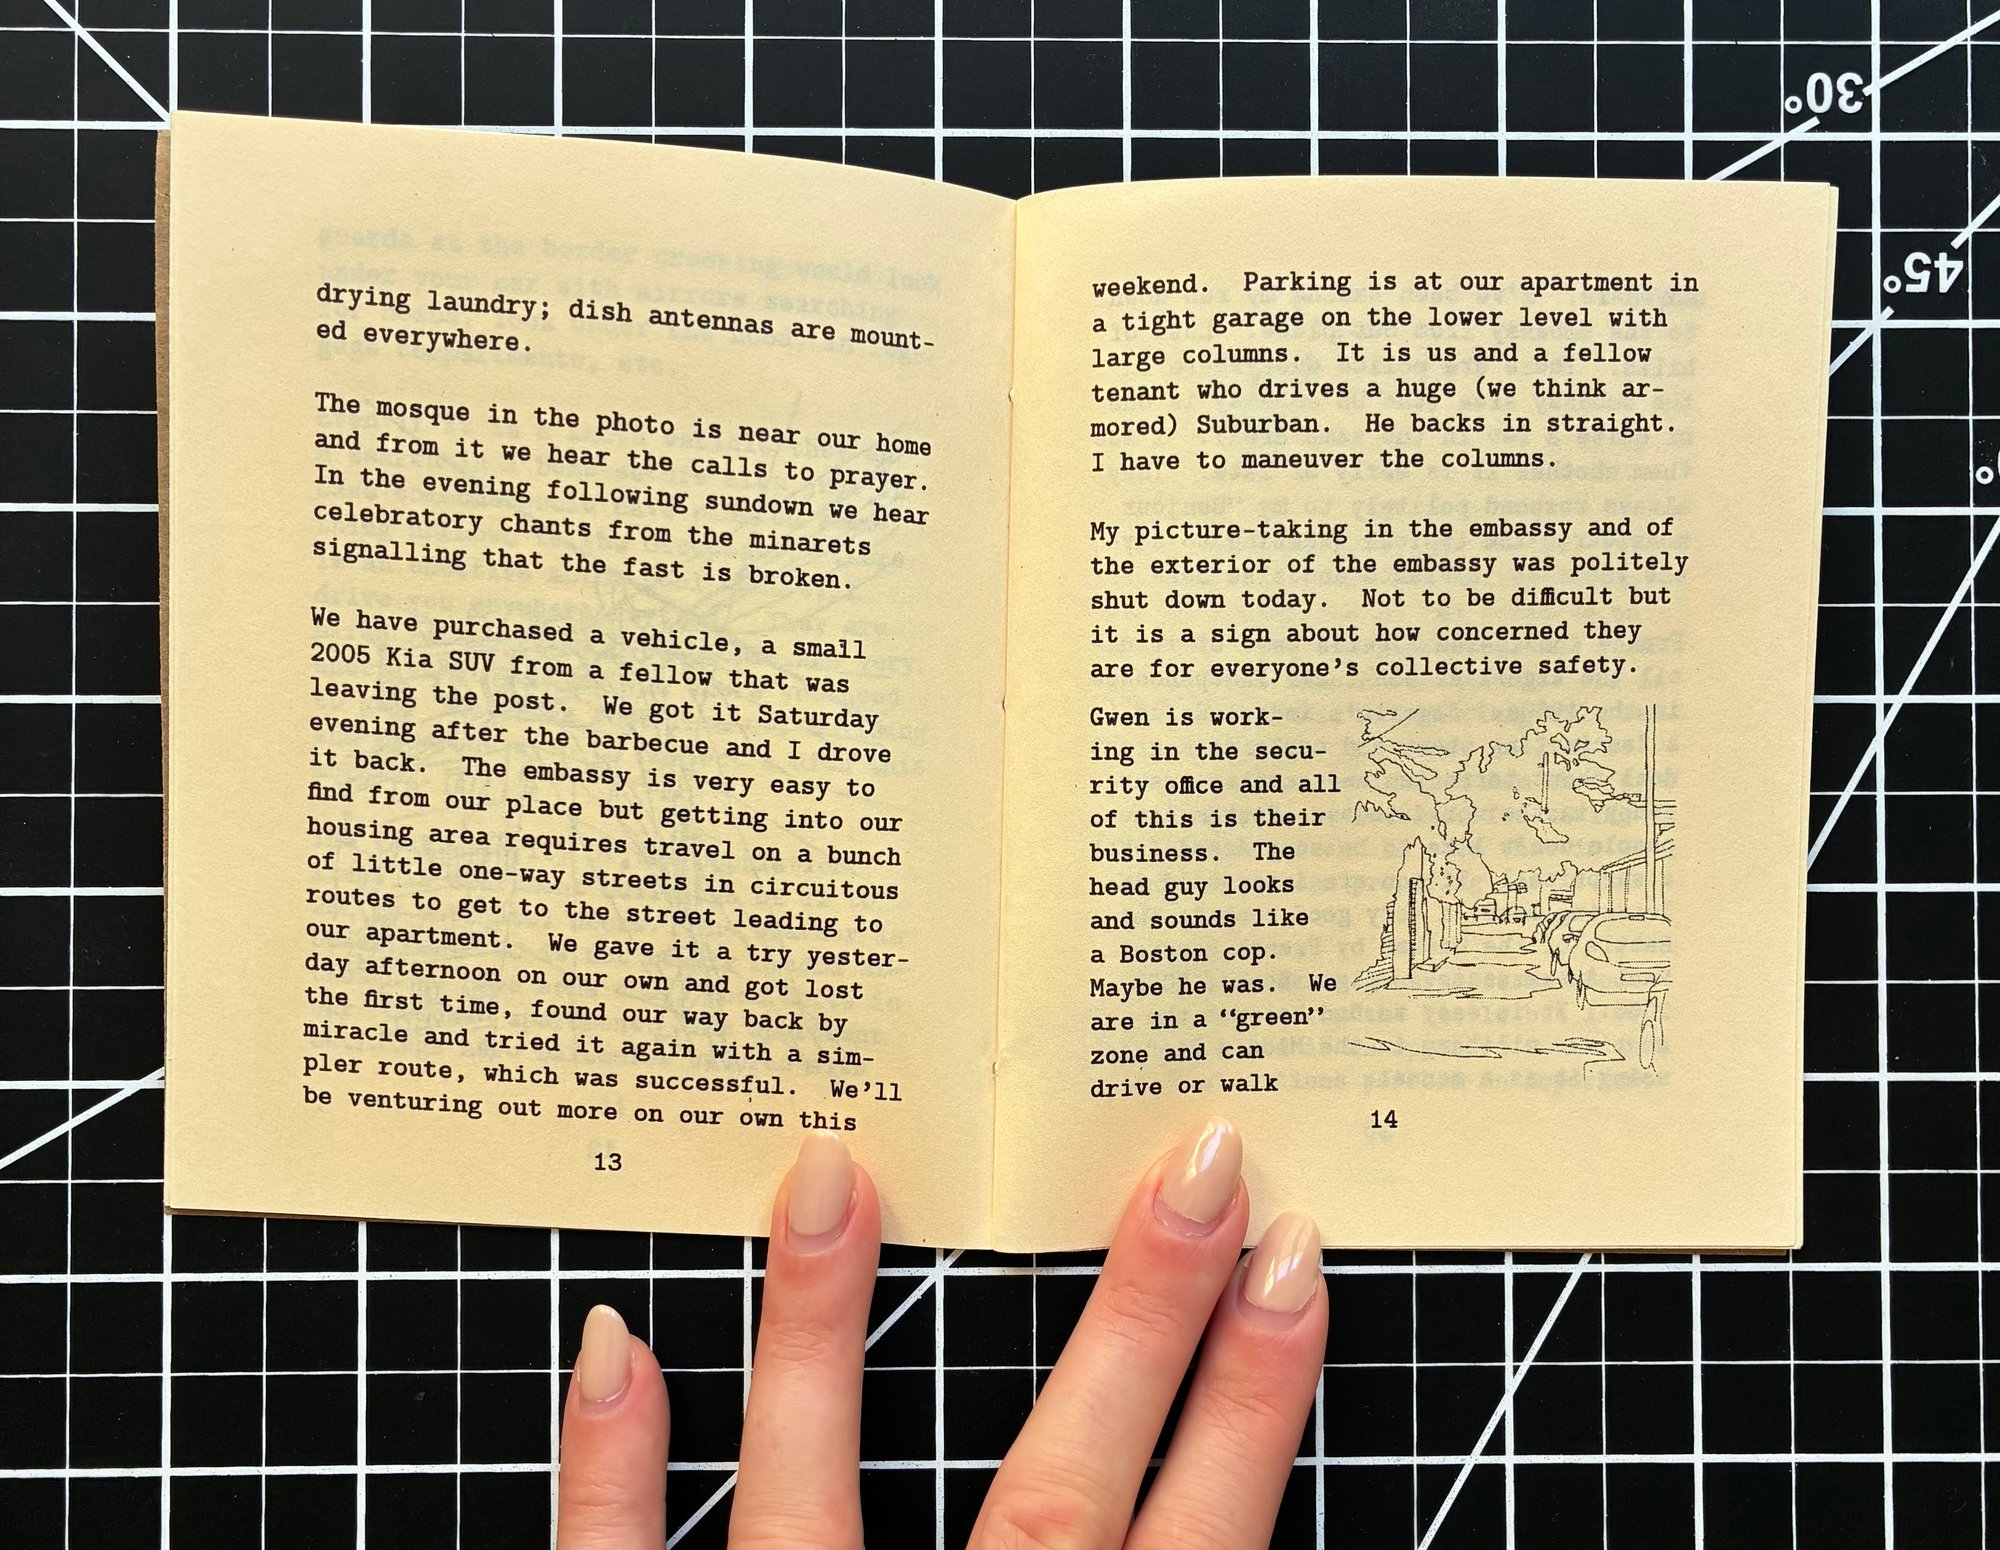 drying laundry; dish antennas are mount-
ed everywhere.
The mosque in the photo is near our home
and from it we hear the calls to prayer.
In the evening following sundown we hear
celebratory chants from the minarets
signalling that the fast is broken.
We have purchased a vehicle, a small
2005 Kia SUV from a fellow that was
leaving the post.  We got it Saturday
evening after the barbecue and I drove
it back.  The embassy is very easy to
find from our place but getting into our
housing area requires travel on a bunch
of little one-way streets in circuitous
routes to get to the street leading to
our apartment.  We gave it a try yester-
day afternoon on our own and got lost
the first time, found our way back by
miracle and tried it again with a sim-
pler route, which was successful.  We’ll
be venturing out more on our own this
13
weekend.  Parking is at our apartment in
a tight garage on the lower level with
large columns.  It is us and a fellow
tenant who drives a huge (we think ar-
mored) Suburban.  He backs in straight.
I have to maneuver the columns.
My picture-taking in the embassy and of
the exterior of the embassy was politely
shut down today.  Not to be difficult but
it is a sign about how concerned they
are for everyone’s collective safety.
Gwen is work-
ing in the secu-
rity office and all
of this is their
business.  The
head guy looks
and sounds like
a Boston cop.
Maybe he was.  We
are in a “green”
zone and can
drive or walk
14
30°
45°